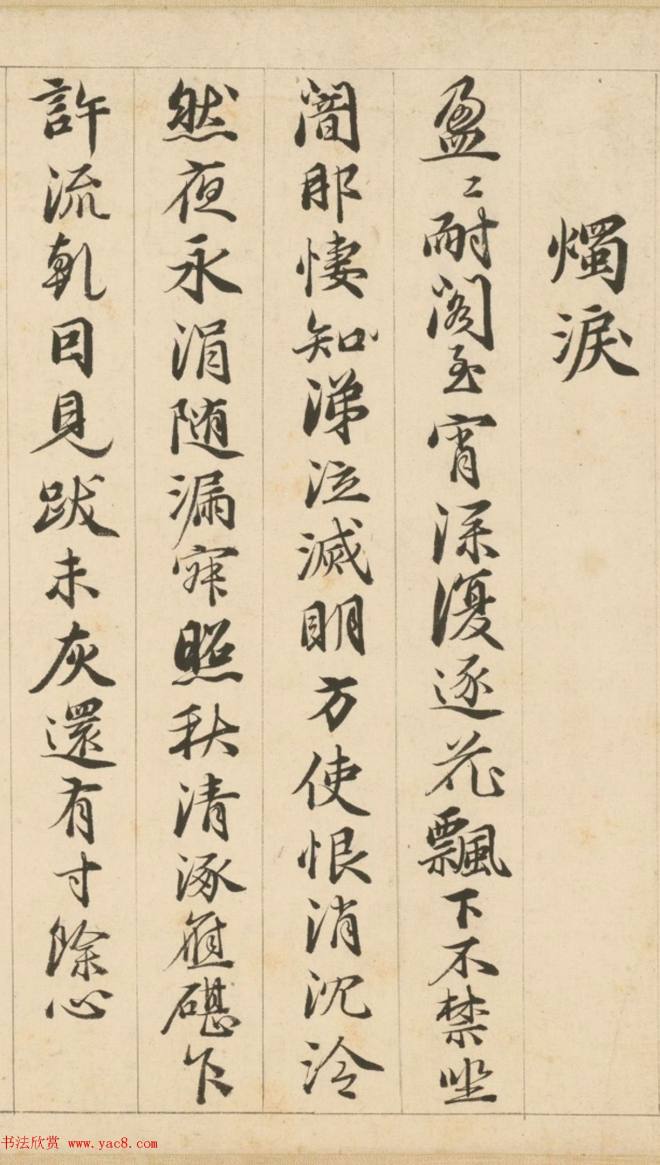 燭淚
盈〻耐閣至宵深復逐花飄下不禁坐
闇那悽知涕泣滅明方使恨消沉泠
然夜永涓随漏寂照秋清涿應碪乍
許流乾囙見跋未灰還有寸餘心
书法欣赏 www.yac8.com